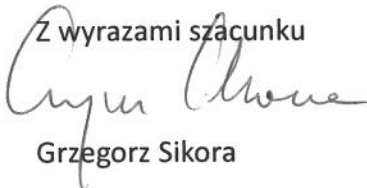 Z wyrazami szacunku
Grzegorz Sikora